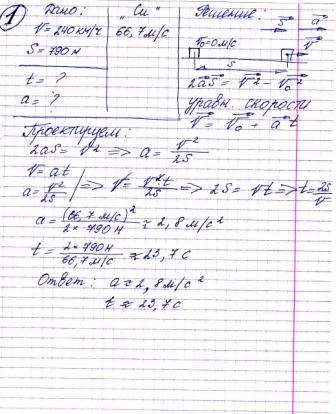 1 Дано: "Си" Решение:
V = 240 км/ч 66,7 м/с
S = 790 м
t = ?
a = ?
V₀=0 м/с S a V
S
2aS = V² - V₀²
уравн. скорости
V = V₀ + at
Проектируем:
2aS = V² => a = V²/2S
V = at
a = V²/2S => V = V²t/2S => 2S = Vt => t = 2S/V
a = (66,7 м/с)²/2 × 790 м ≈ 2,8 м/с²
t = 2 × 790 м/66,7 м/с ≈ 23,7 с
Ответ: a ≈ 2,8 м/с²
t ≈ 23,7 с